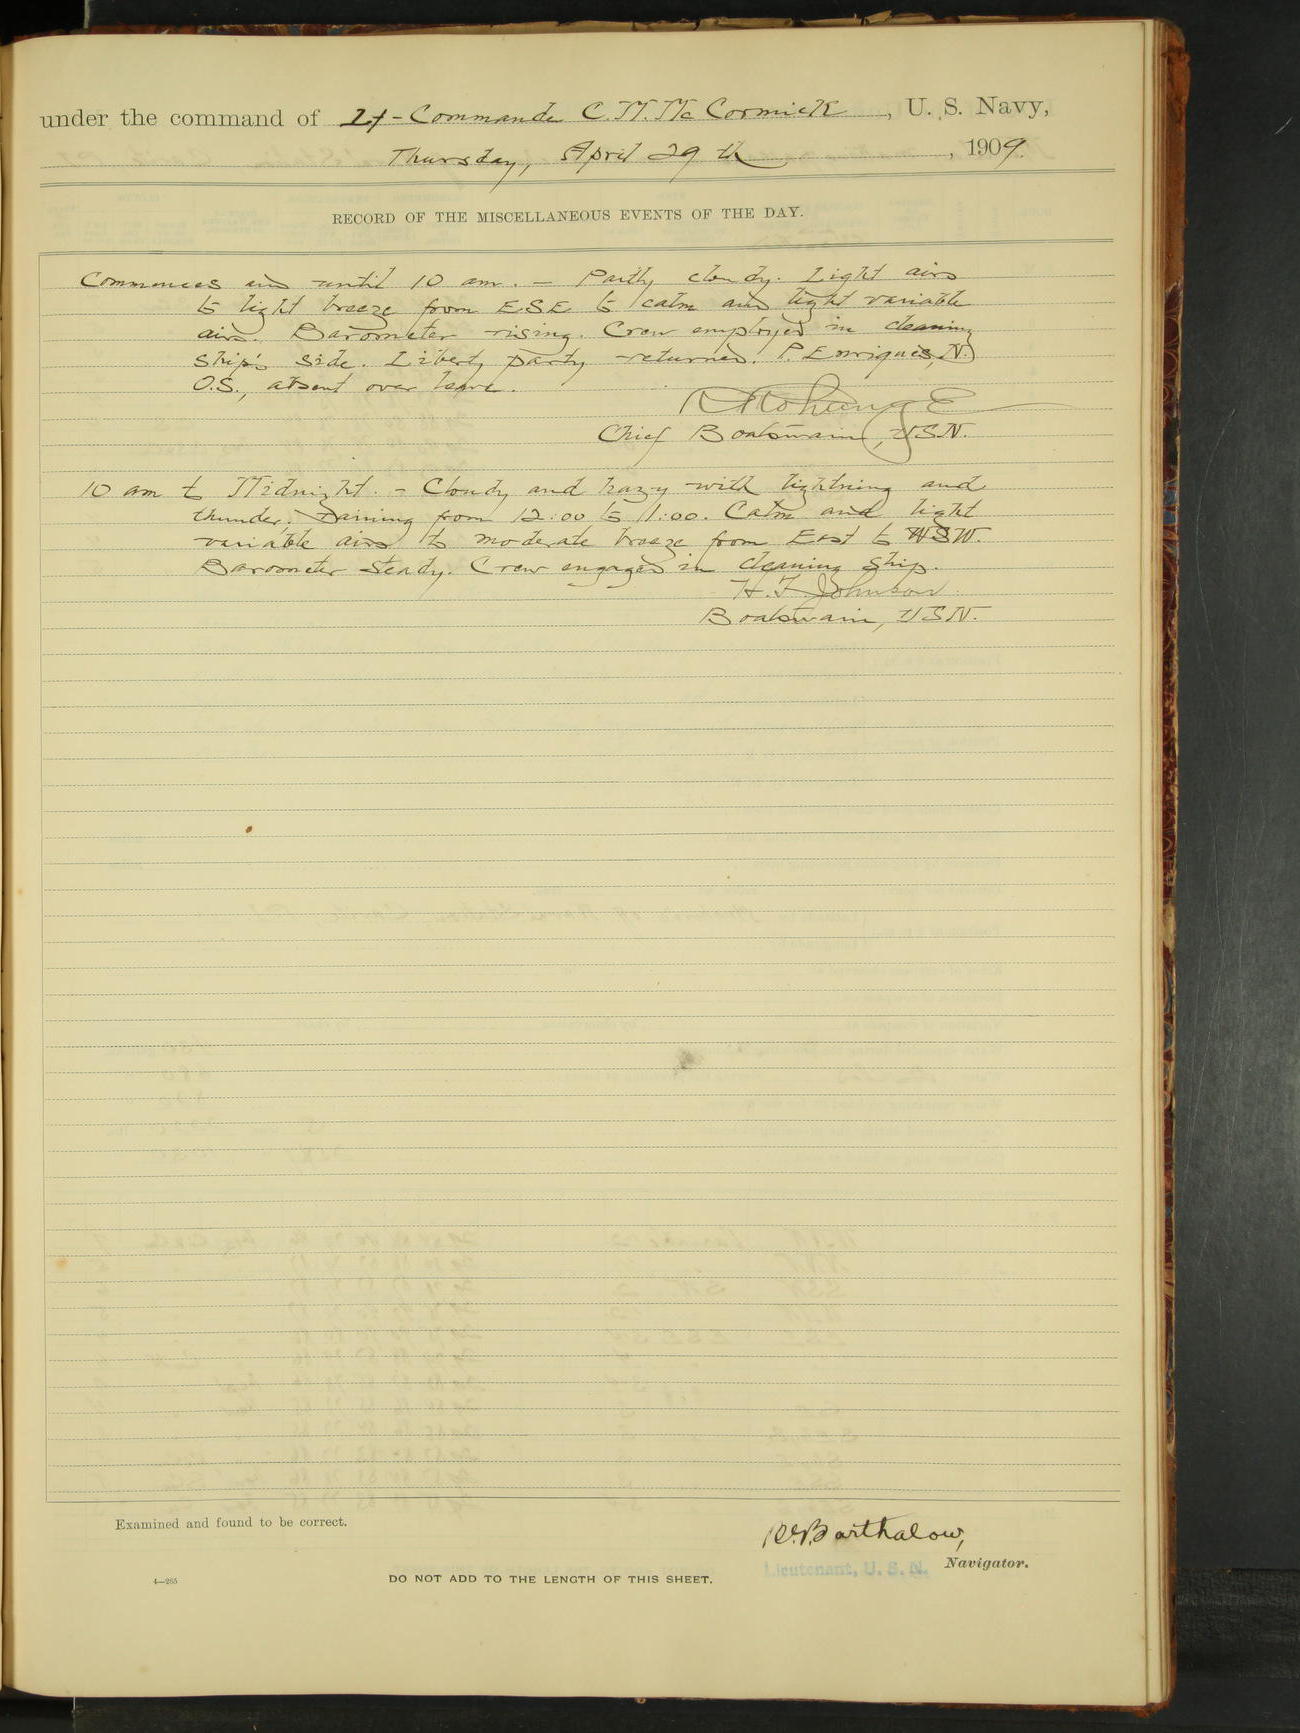 under the command of Lt-Commander C. M. McCormick, U. S. Navy,
Thursday, April 29th, 1909.
RECORD OF THE MISCELLANEOUS EVENTS OF THE DAY.
Commences and until 10 am. - Partly cloudy. Light airs
to light breeze from ESE to calm and light variable
airs. Barometer rising. Crew employed in cleaning
ship's side. Liberty party returned. P. Enriques, N.
O.S., absent over leave.
Chief Boatswain, USN.
10 am to Midnight. - Cloudy and hazy with lightning and
thunder. Raining from 12:00 to 1:00. Calm and light
variable airs to moderate breeze from East to WSW.
Barometer steady. Crew engaged in cleaning ship.
H. F. Johnson
Boatswain, USN.
Examined and found to be correct.
Barthalow,
Lieutenant, U. S. N. Navigator.
4—265
DO NOT ADD TO THE LENGTH OF THIS SHEET.